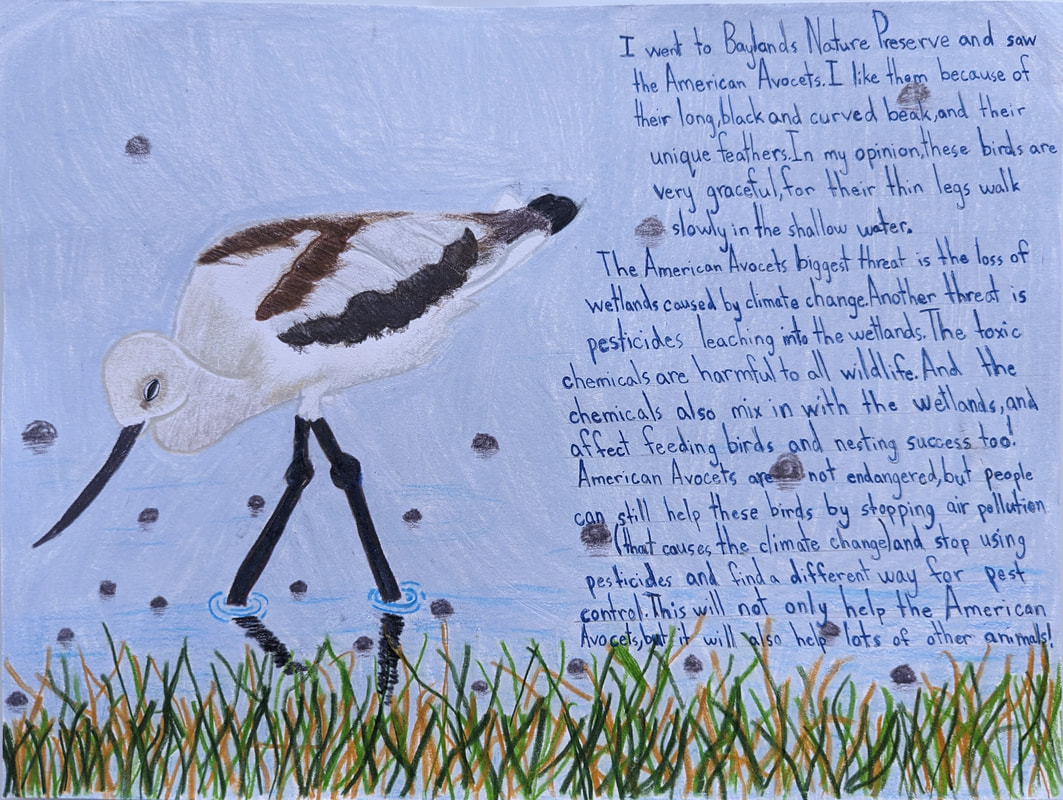 I went to Baylands Nature Preserve and saw
the American Avocets. I like them because of
their long, black and curved beak, and their
unique feathers. In my opinion, these birds are
very graceful, for their thin legs walk
slowly in the shallow water.
The American Avocets biggest threat is the loss of
wetlands caused by climate change. Another threat is
pesticides leaching into the wetlands. The toxic
chemicals are harmful to all wildlife. And the
chemicals also mix in with the wetlands, and
affect feeding birds and nesting success too!
American Avocets are not endangered, but people
can still help these birds by stopping air pollution
(that causes the climate change) and stop using
pesticides and find a different way for pest
control. This will not only help the American
Avocets, but it will also help lots of other animals!